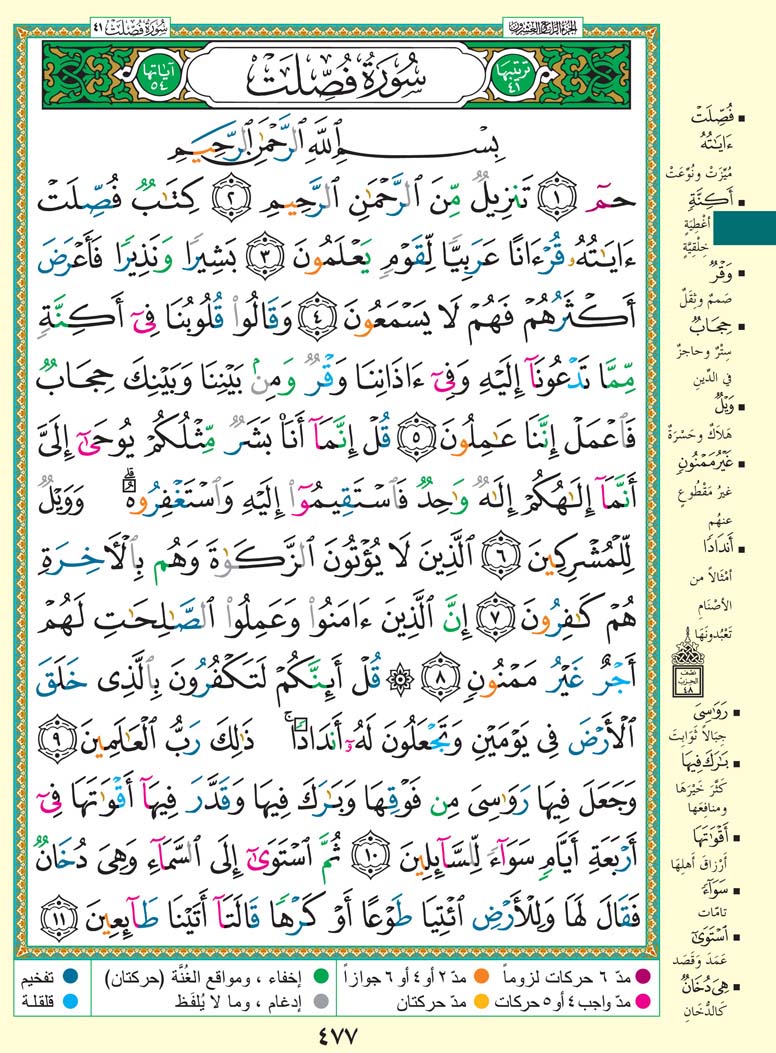 الجزء الرابع والعشرون
سُورَةُ فُصِّلَتْ ٤١
ترتيبها ٤١
سُورَةُ فُصِّلَتْ
آياتها ٥٤
بِسْمِ ٱللَّهِ ٱلرَّحْمَٰنِ ٱلرَّحِيمِ
حمٓ ١ تَنزِيلٌ مِّنَ ٱلرَّحْمَٰنِ ٱلرَّحِيمِ ٢ كِتَٰبٌ فُصِّلَتْ
ءَايَٰتُهُۥ قُرْءَانًا عَرَبِيًّا لِّقَوْمٍ يَعْلَمُونَ ٣ بَشِيرًا وَنَذِيرًا فَأَعْرَضَ
أَكْثَرُهُمْ فَهُمْ لَا يَسْمَعُونَ ٤ وَقَالُوا۟ قُلُوبُنَا فِىٓ أَكِنَّةٍ
مِّمَّا تَدْعُونَآ إِلَيْهِ وَفِىٓ ءَاذَانِنَا وَقْرٌ وَمِنۢ بَيْنِنَا وَبَيْنِكَ حِجَابٌ
فَٱعْمَلْ إِنَّنَا عَٰمِلُونَ ٥ قُلْ إِنَّمَآ أَنَا۠ بَشَرٌ مِّثْلُكُمْ يُوحَىٰٓ إِلَىَّ
أَنَّمَآ إِلَٰهُكُمْ إِلَٰهٌ وَٰحِدٌ فَٱسْتَقِيمُوٓا۟ إِلَيْهِ وَٱسْتَغْفِرُوهُ ۗ وَوَيْلٌ
لِّلْمُشْرِكِينَ ٦ ٱلَّذِينَ لَا يُؤْتُونَ ٱلزَّكَوٰةَ وَهُم بِٱلْـَٔاخِرَةِ
هُمْ كَٰفِرُونَ ٧ إِنَّ ٱلَّذِينَ ءَامَنُوا۟ وَعَمِلُوا۟ ٱلصَّٰلِحَٰتِ لَهُمْ
أَجْرٌ غَيْرُ مَمْنُونٍ ٨ ۞ قُلْ أَئِنَّكُمْ لَتَكْفُرُونَ بِٱلَّذِى خَلَقَ
ٱلْأَرْضَ فِى يَوْمَيْنِ وَتَجْعَلُونَ لَهُۥٓ أَندَادًا ۚ ذَٰلِكَ رَبُّ ٱلْعَٰلَمِينَ ٩
وَجَعَلَ فِيهَا رَوَٰسِىَ مِن فَوْقِهَا وَبَٰرَكَ فِيهَا وَقَدَّرَ فِيهَآ أَقْوَٰتَهَا فِىٓ
أَرْبَعَةِ أَيَّامٍ سَوَآءً لِّلسَّآئِلِينَ ١٠ ثُمَّ ٱسْتَوَىٰٓ إِلَى ٱلسَّمَآءِ وَهِىَ دُخَانٌ
فَقَالَ لَهَا وَلِلْأَرْضِ ٱئْتِيَا طَوْعًا أَوْ كَرْهًا قَالَتَآ أَتَيْنَا طَآئِعِينَ ١١
فُصِّلَتْ
ءَايَٰتُهُ
مُيِّزَتْ وَنُوِّعَتْ
أَكِنَّةٍ
أغْطِيَةٍ
خِلْقِيَّةٍ
وَقْرٌ
صَمَمٌ وثِقَلٌ
حِجَابٌ
سِتْرٌ وحاجزٌ
في الدِّينِ
وَيْلٌ
هَلاكٌ وحَسْرَةٌ
غَيْرُ مَمْنُونٍ
غيرُ مَقْطُوعٍ
عنهُم
أَندَادًا
أمْثالاً من
الأصْنَامِ
تَعْبُدونَهَا
نصف
الحزب
٤٨
رَوَٰسِىَ
جِبَالاً ثَوَابِتَ
بَٰرَكَ فِيهَا
كَثَّرَ خَيْرَهَا
ومنافِعَها
أَقْوَٰتَهَا
أرْزاقَ أهلِهَا
سَوَآءً
تامّات
ٱسْتَوَىٰٓ
عَمَدَ وَقَصَدَ
هِىَ دُخَانٌ
كَالدُّخَانِ
مدّ ٦ حركات لزوماً
مدّ ٢ أو ٤ أو ٦ جوازاً
إخفاء ، ومواقع الغُنَّة (حركتان)
تفخيم
مدّ واجب ٤ أو ٥ حركات
مدّ حركتان
إدغام ، وما لا يُلفَظ
قلقلة
٤٧٧